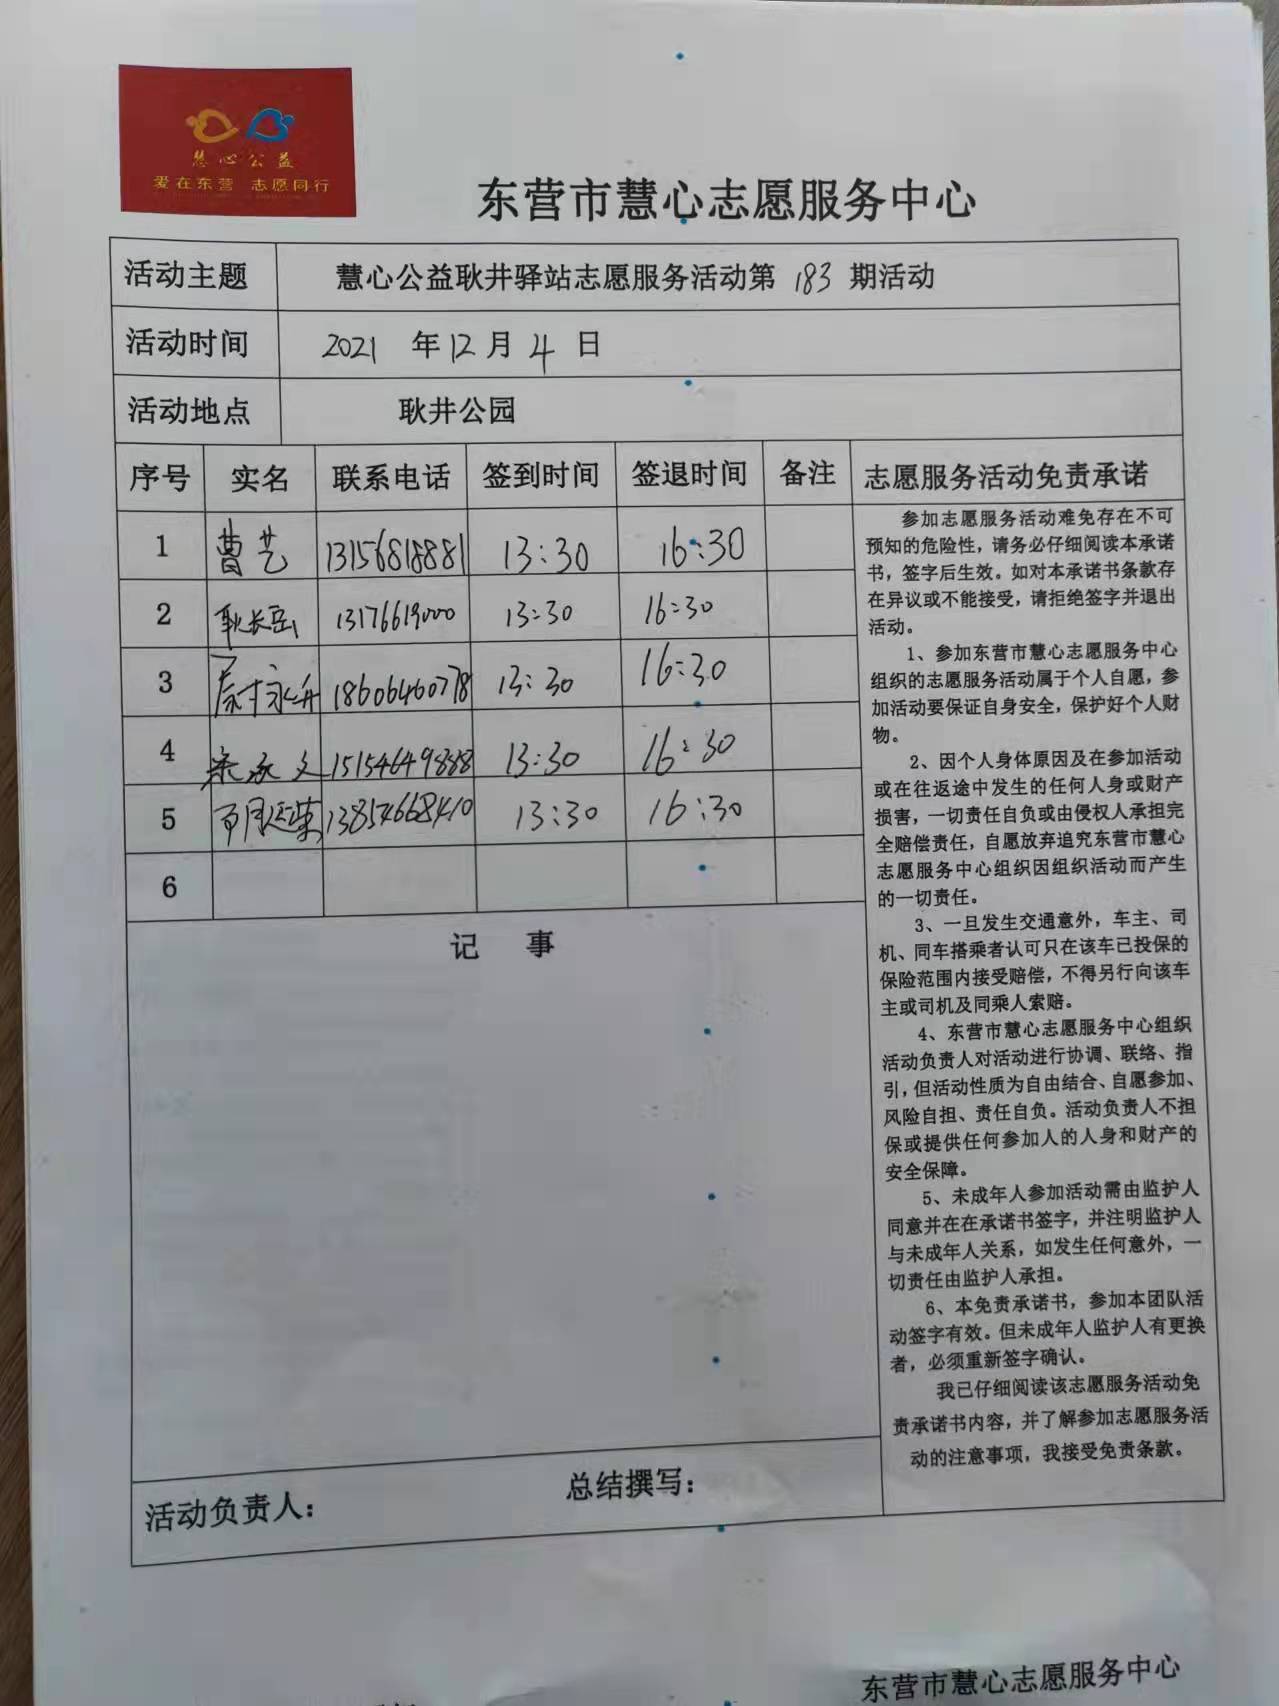 慧心公益
爱在东营 志愿同行
东营市慧心志愿服务中心
活动主题 慧心公益耿井驿站志愿服务活动第 183 期活动
活动时间 2021 年 12 月 4 日
活动地点 耿井公园
序号 实名 联系电话 签到时间 签退时间 备注 志愿服务活动免责承诺
1 曹艺 13156818881 13:30 16:30
2 耿长岳 13176619000 13:30 16:30
3 18606460778 13:30 16:30
4 15154649888 13:30 16:30
5 13854668410 13:30 16:30
6
记 事
活动负责人： 总结撰写：
参加志愿服务活动难免存在不可
预知的危险性，请务必仔细阅读本承诺
书，签字后生效。如对本承诺书条款存
在异议或不能接受，请拒绝签字并退出
活动。
1、参加东营市慧心志愿服务中心
组织的志愿服务活动属于个人自愿，参
加活动要保证自身安全，保护好个人财
物。
2、因个人身体原因及在参加活动
或在往返途中发生的任何人身或财产
损害，一切责任自负或由侵权人承担完
全赔偿责任，自愿放弃追究东营市慧心
志愿服务中心组织因组织活动而产生
的一切责任。
3、一旦发生交通意外，车主、司
机、同车搭乘者认可只在该车已投保的
保险范围内接受赔偿，不得另行向该车
主或司机及同乘人索赔。
4、东营市慧心志愿服务中心组织
活动负责人对活动进行协调、联络、指
引，但活动性质为自由结合、自愿参加、
风险自担、责任自负。活动负责人不担
保或提供任何参加人的人身和财产的
安全保障。
5、未成年人参加活动需由监护人
同意并在在承诺书签字，并注明监护人
与未成年人关系，如发生任何意外，一
切责任由监护人承担。
6、本免责承诺书，参加本团队活
动签字有效。但未成年人监护人有更换
者，必须重新签字确认。
我已仔细阅读该志愿服务活动免
责承诺书内容，并了解参加志愿服务活
动的注意事项，我接受免责条款。
东营市慧心志愿服务中心